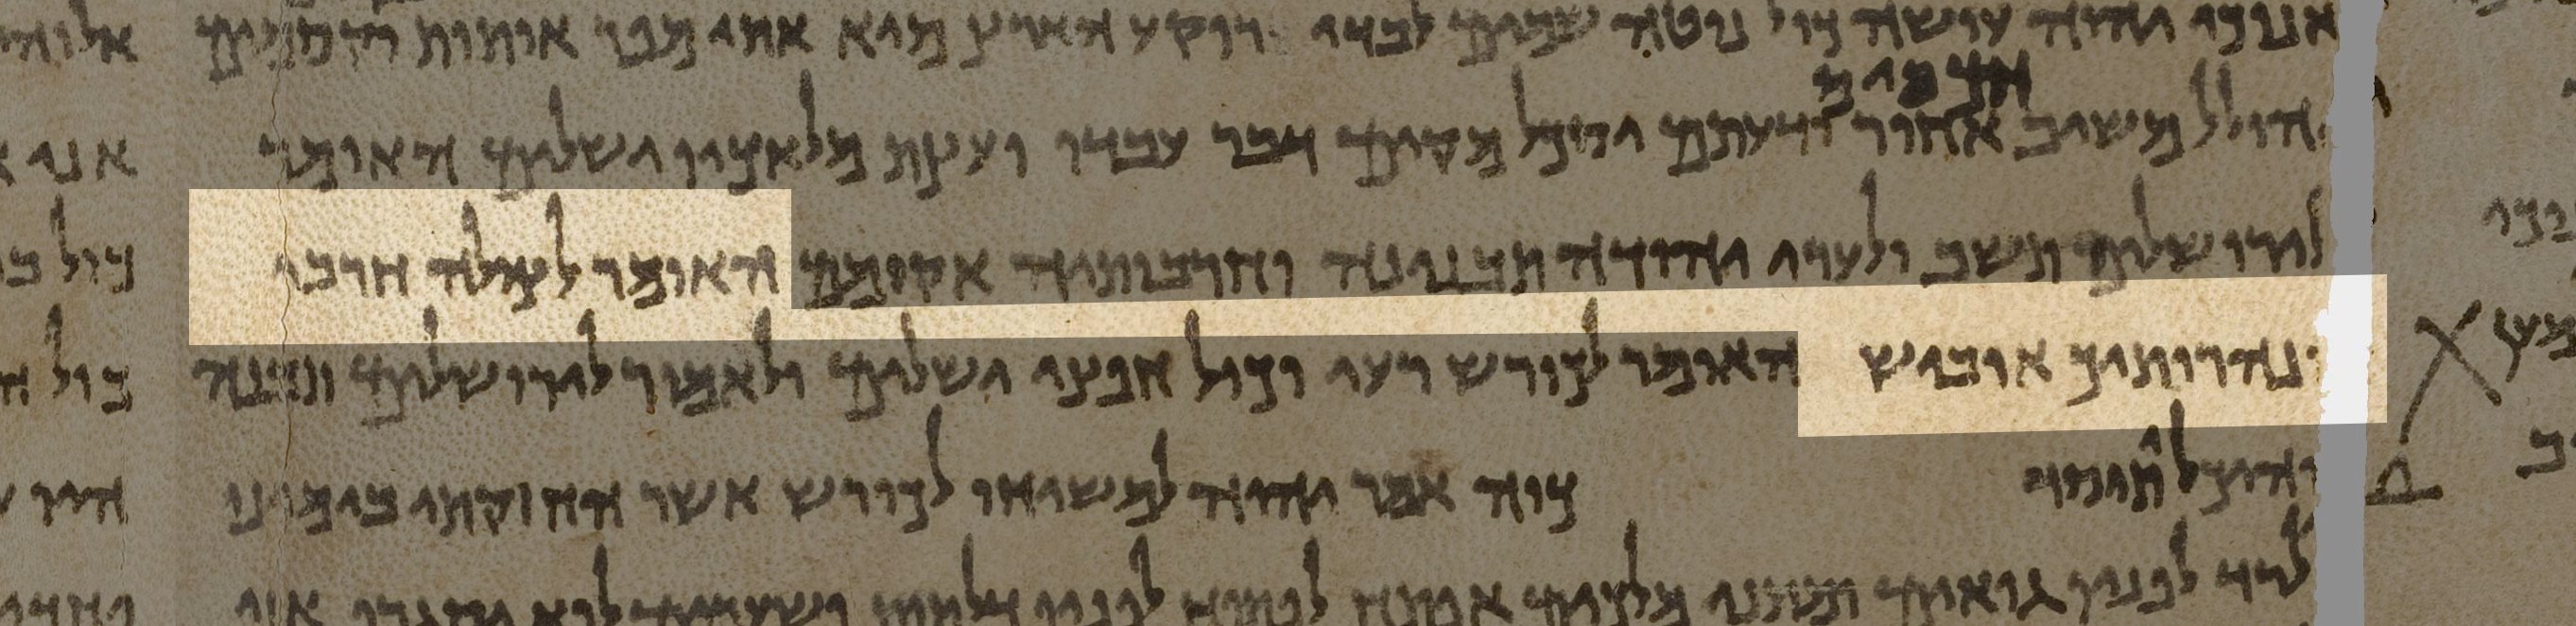 אנוכי יהוה עושה כול נוטה שמים לבדי רוקע הארץ מיא אתי מפר אותות וקסמים
חכמים
יהולל משיב אחור ודעתם יסכל מקים דבר עבדו ועצת מלאכיו ישלים האומר
לירושלים תשב ולערי יהודה תבנינה וחרבותיה אקומם האומר לצולה חרבי
ונהרותיך אוביש האומר לכורש רעי וכול חפצי ישלים ולאמור לירושלים תבנה
והיכל תיוסד כוה אמר יהוה למשיחו לכורש אשר החזקתי בימינו
לרד לפניו גואים ומתני מלכים אפתח לפתוח לפניו דלתות ושערים לוא יסגרו אני